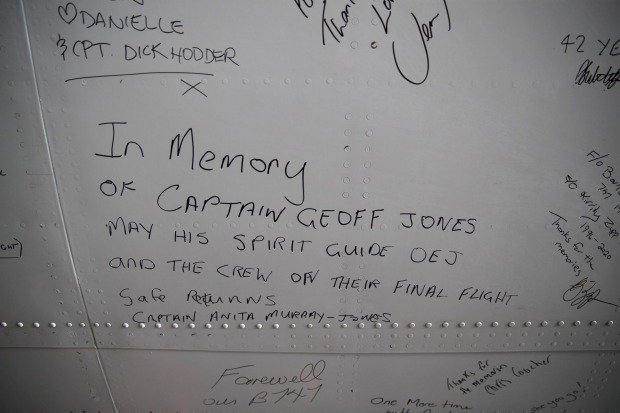 ♡DANIELLE
& CPT. DICK HODDER
X
Than
42 YE
In Memory
OF CAPTAIN GEOFF JONES
MAY HIS SPIRIT GUIDE OEJ
AND THE CREW ON THEIR FINAL FLIGHT
Safe Returns
CAPTAIN ANITA MURRAY-JONES
F/O
S/O
1996-2020
Thanks for the
memories
Farewell
our B747
Thanks for
the memories
One More time